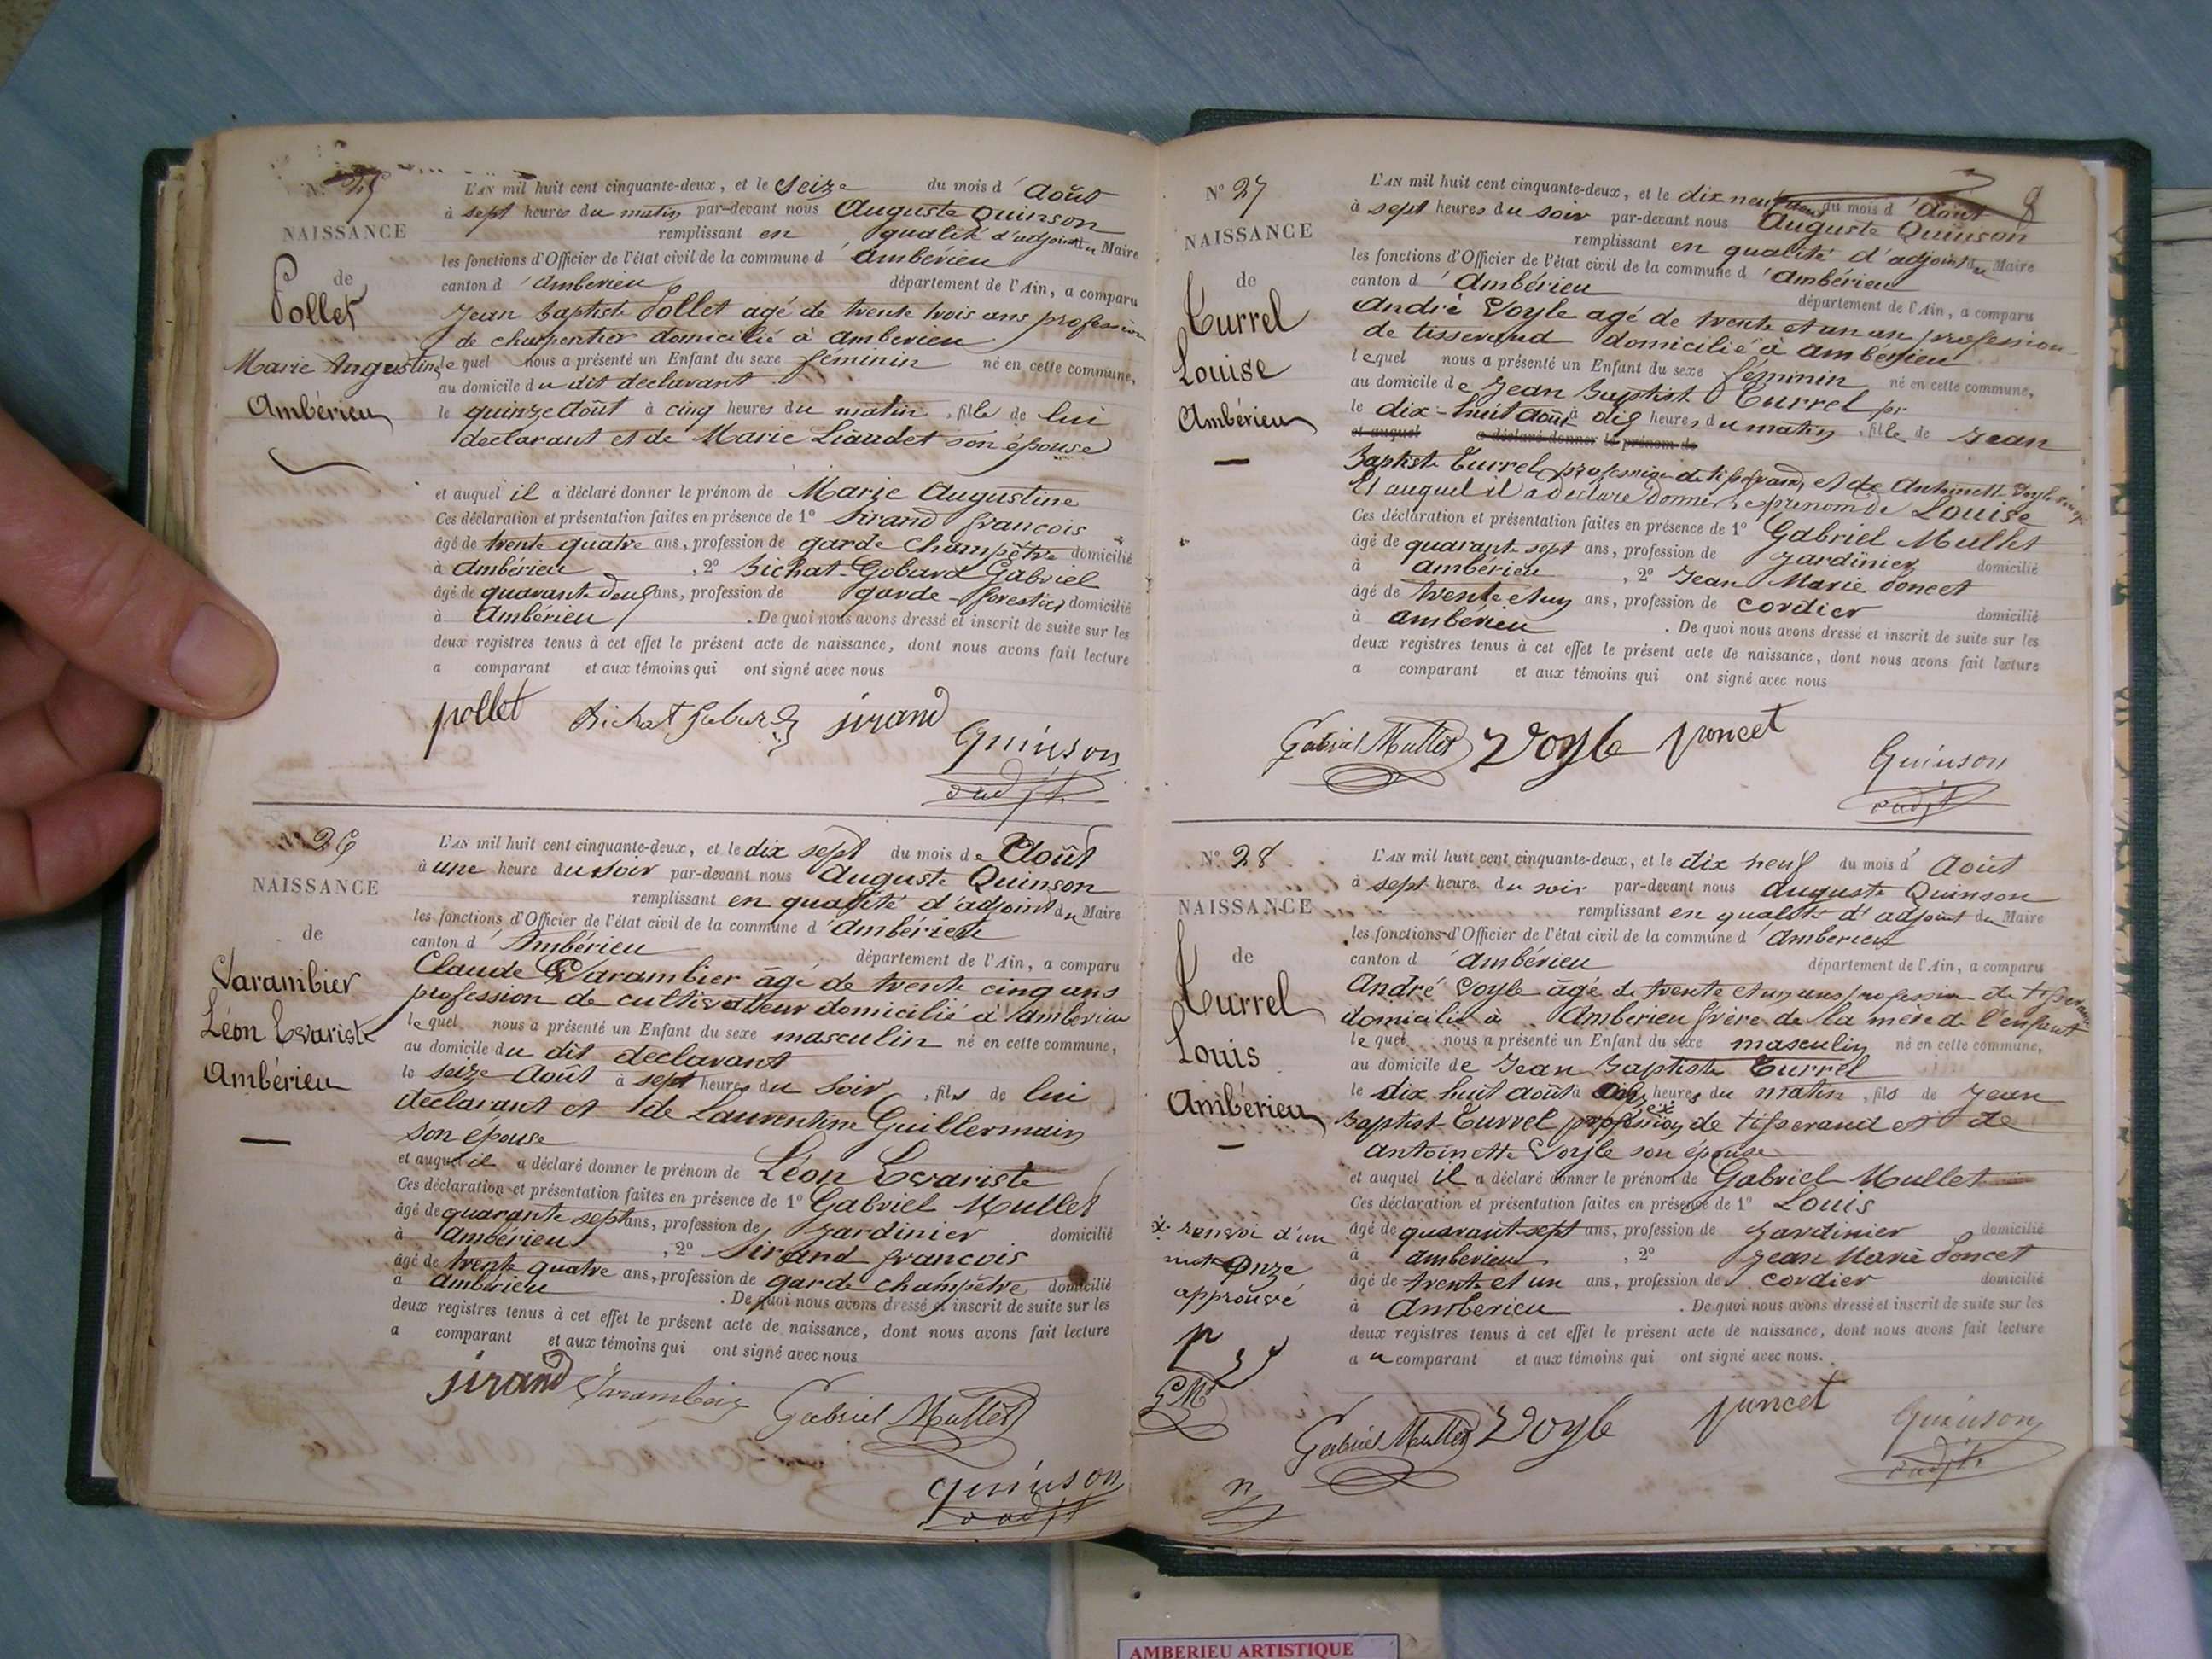 N° 25
NAISSANCE
de
Pollet
Marie Augustine
Ambérieu
L'AN mil huit cent cinquante-deux, et le Seize du mois d'Août
à sept heures du matin par-devant nous Auguste Quinson
remplissant en qualité d'adjoint du Maire
les fonctions d'Officier de l'état civil de la commune d'Ambérieu
canton d'Ambérieu département de l'Ain, a comparu
Jean Baptiste Pollet agé de trente trois ans profession
de charpentier domicilié à Ambérieu
lequel nous a présenté un Enfant du sexe féminin né en cette commune,
au domicile du dit déclarant
le quinze Août à cinq heures du matin, fille de lui
déclarant et de Marie Liaudet son épouse
et auquel il a déclaré donner le prénom de Marie Augustine
Ces déclaration et présentation faites en présence de 1° Sirand françois
âgé de trente quatre ans, profession de garde Champêtre domicilié
à Ambérieu, 2° Bichat-Gobard Gabriel
âgé de quarante deux ans, profession de garde-forestier domicilié
à Ambérieu. De quoi nous avons dressé et inscrit de suite sur les
deux registres tenus à cet effet le présent acte de naissance, dont nous avons fait lecture
a comparant et aux témoins qui ont signé avec nous
pollet Bichat gobard sirand
Quinson
adjt
N° 26
NAISSANCE
de
Varambier
Léon Evariste
Ambérieu
L'AN mil huit cent cinquante-deux, et le dix sept du mois de Août
à une heure du soir par-devant nous Auguste Quinson
remplissant en qualité d'adjoint du Maire
les fonctions d'Officier de l'état civil de la commune d'Ambérieu
canton d'Ambérieu département de l'Ain, a comparu
Claude Varambier âgé de trente cinq ans
profession de cultivateur domicilié à Ambérieu
lequel nous a présenté un Enfant du sexe masculin né en cette commune,
au domicile du dit déclarant
le seize Août à sept heures du soir, fils de lui
déclarant et de Laurentine Guillermain
son epouse
et auquel il a déclaré donner le prénom de Léon Evariste
Ces déclaration et présentation faites en présence de 1° Gabriel Mullet
âgé de quarante sept ans, profession de jardinier domicilié
à Ambérieu, 2° Sirand françois
âgé de trente quatre ans, profession de garde champêtre domicilié
à Ambérieu. De quoi nous avons dressé et inscrit de suite sur les
deux registres tenus à cet effet le présent acte de naissance, dont nous avons fait lecture
a comparant et aux témoins qui ont signé avec nous
sirand Varambier Gabriel Mullet
Quinson
adjt
8
N° 27
NAISSANCE
de
Turrel
Louise
Ambérieu
L'AN mil huit cent cinquante-deux, et le dix neuf du mois d'Août
à sept heures du soir par-devant nous Auguste Quinson
remplissant en qualité d'adjoint du Maire
les fonctions d'Officier de l'état civil de la commune d'Ambérieu
canton d'Ambérieu département de l'Ain, a comparu
André Voyle agé de trente et un an profession
de tisserand domicilié à ambérieu
lequel nous a présenté un Enfant du sexe féminin né en cette commune,
au domicile de Jean Baptist Turrel
le dix-huit août à dix heures du matin, fille de Jean
et auquel a déclaré donner le prénom de
Baptiste Turrel profession de tisserand, et de Antoinette Voyle
Et auquel il a déclaré donner le prénom de Louise
Ces déclaration et présentation faites en présence de 1° Gabriel Mullet
âgé de quarante sept ans, profession de jardinier domicilié
à ambérieu, 2° Jean Marie Poncet
âgé de trente et un ans, profession de cordier domicilié
à ambérieu. De quoi nous avons dressé et inscrit de suite sur les
deux registres tenus à cet effet le présent acte de naissance, dont nous avons fait lecture
a comparant et aux témoins qui ont signé avec nous
Gabriel Mullet Voyle poncet
Quinson
adjt
N° 28
NAISSANCE
de
Turrel
Louis
Ambérieu
x renvoi d'un
mot onze
approuvé
GM
L'AN mil huit cent cinquante-deux, et le dix neuf du mois d'Août
à sept heure du soir par-devant nous Auguste Quinson
remplissant en qualité d'adjoint du Maire
les fonctions d'Officier de l'état civil de la commune d'Ambérieu
canton d'Ambérieu département de l'Ain, a comparu
André Voyle âgé de trente et un ans profession de tisserand
domicilié à Ambérieu frère de la mère de l'enfant
lequel nous a présenté un Enfant du sexe masculin né en cette commune,
au domicile de Jean Baptiste Turrel
le dix huit août à heures du matin, fils de Jean
Baptist Turrel profession de tisserand et de
Antoinette Voyle son épouse
et auquel il a déclaré donner le prénom de Gabriel Mullet
Ces déclaration et présentation faites en présence de 1° Louis
âgé de quarant sept ans, profession de jardinier domicilié
à ambérieu, 2° Jean Marie Poncet
âgé de trente et un ans, profession de cordier domicilié
à Ambérieu. De quoi nous avons dressé et inscrit de suite sur les
deux registres tenus à cet effet le présent acte de naissance, dont nous avons fait lecture
au comparant et aux témoins qui ont signé avec nous.
Gabriel Mullet Voyle poncet
Quinson
adjt
AMBERIEU ARTISTIQUE